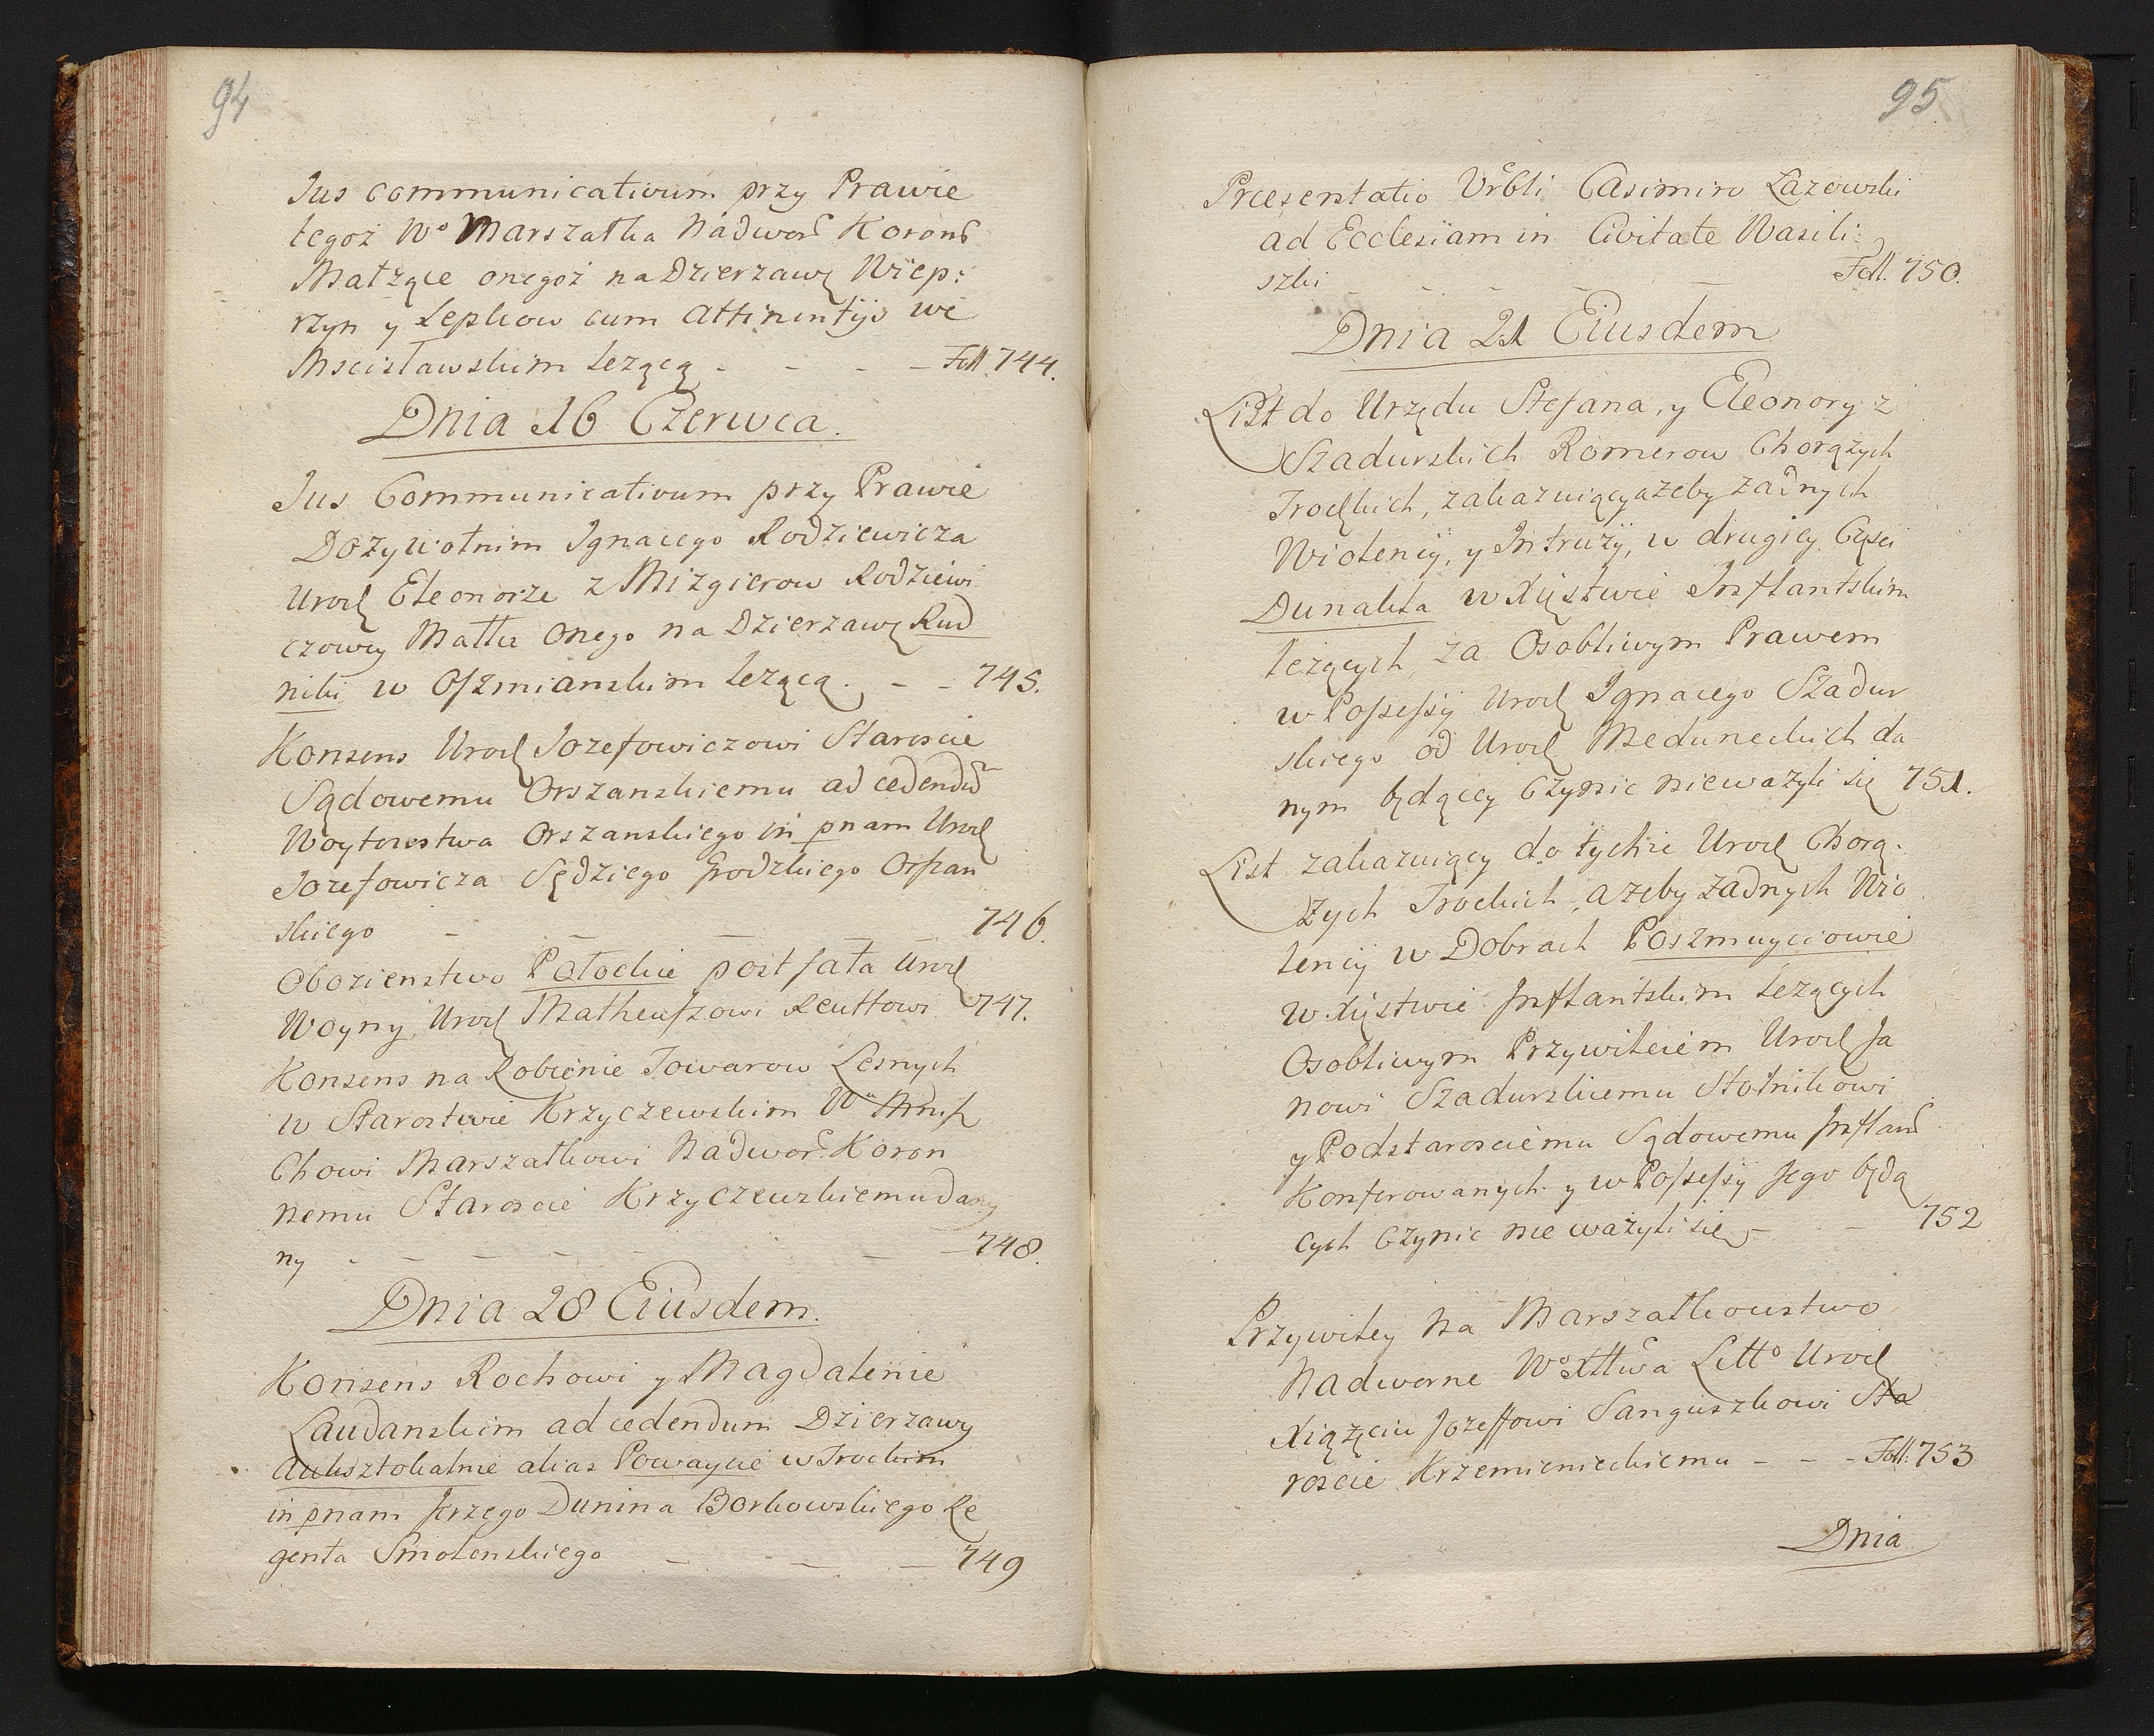 94
Jus communicativum przy Prawie
tegoż Wo Marszałka Nadwor Koron
Małżące onegoż na Dzierzawę Wiep:
rzyn y Lepkow cum Attinentijs we
Mscisławskim leżącą - - - - Foll. 744.
Dnia 16 Czerwca.
Jus Communicativum przy Prawie
Dożywotnim Ignacego Rodziewicza
Urodz Eleonorze z Mizgierow Rodziewi
czowey Małże Onego na Dzierzawę Rud
niki w Oszmianskim leżącą. - - 745.
Konsens Urodz Jozefowiczowi Staroscie
Sądowemu Orszanskiemu ad cedendũ
Woytowstwa Orszanskiego in pnam Urodz
Jozefowicza Sędziego Grodzkiego Orszan
skiego - - - - - 746.
Obozienstwo Połockie post fata Urodz
Woyny, Urodz Matheuszowi Reuttowi 747.
Konsens na Robienie Towarow Lesnych
w Starostwie Krzyczewskim Wu Mnisz
chowi Marszałkowi Nadwor. Koron
nemu Staroscie Krzyczewskiemu dany
ny - - - - - - 748.
Dnia 28 Eiusdem.
Konsens Rochowi y Magdalenie
Laudanskim ad cedendum Dzierzawy
Auksztokalnie alias Powaycie w Trockim
in pnam Jerzego Dunina Borkowskiego Re
genta Smolenskiego - - - 749
95
Præsentatio Urbli Casimiro Lazowski
ad Ecclesiam in Civitate Wasili:
szki - - - - - Foll. 750.
Dnia 21 Eiusdem
List do Urzędu Stefana, y Eleonory z
Szadurskich Romerow Chorążych
Trockich, zakazuiący ażeby żadnych
Wiolencij, y Intruzij, w drugiey Częsci
Dunakla w Xięstwie Inflantskim
leżących, za Osobliwym Prawem
w Possessij Urodz Ignacego Szadur
skiego od Urodz Meduneckich da
nym będącey Czynic nieważyli się 751.
List zakazuiący do tychże Urodz Chorą.
żych Trockich, ażeby żadnych Wio
lencij w Dobrach Poszmuyciowie
w Xięstwie Inflantskim leżących
Osobliwym Przywileiem Urodz Ja
nowi Szadurskiemu Stolnikowi
y Podstarosciemu Sądowemu Inflan
Konferowanych y w Possessij Jego będą
cych Czynic nie ważyli się - - 752
Przywiley Na Marszałkowstwo
Nadworne Wo Xttwa Litto Urodz
Xiążęciu Jozeffowi Sanguszkowi Sta
roscie Krzemienieckiemu - - - Foll: 753
Dnia